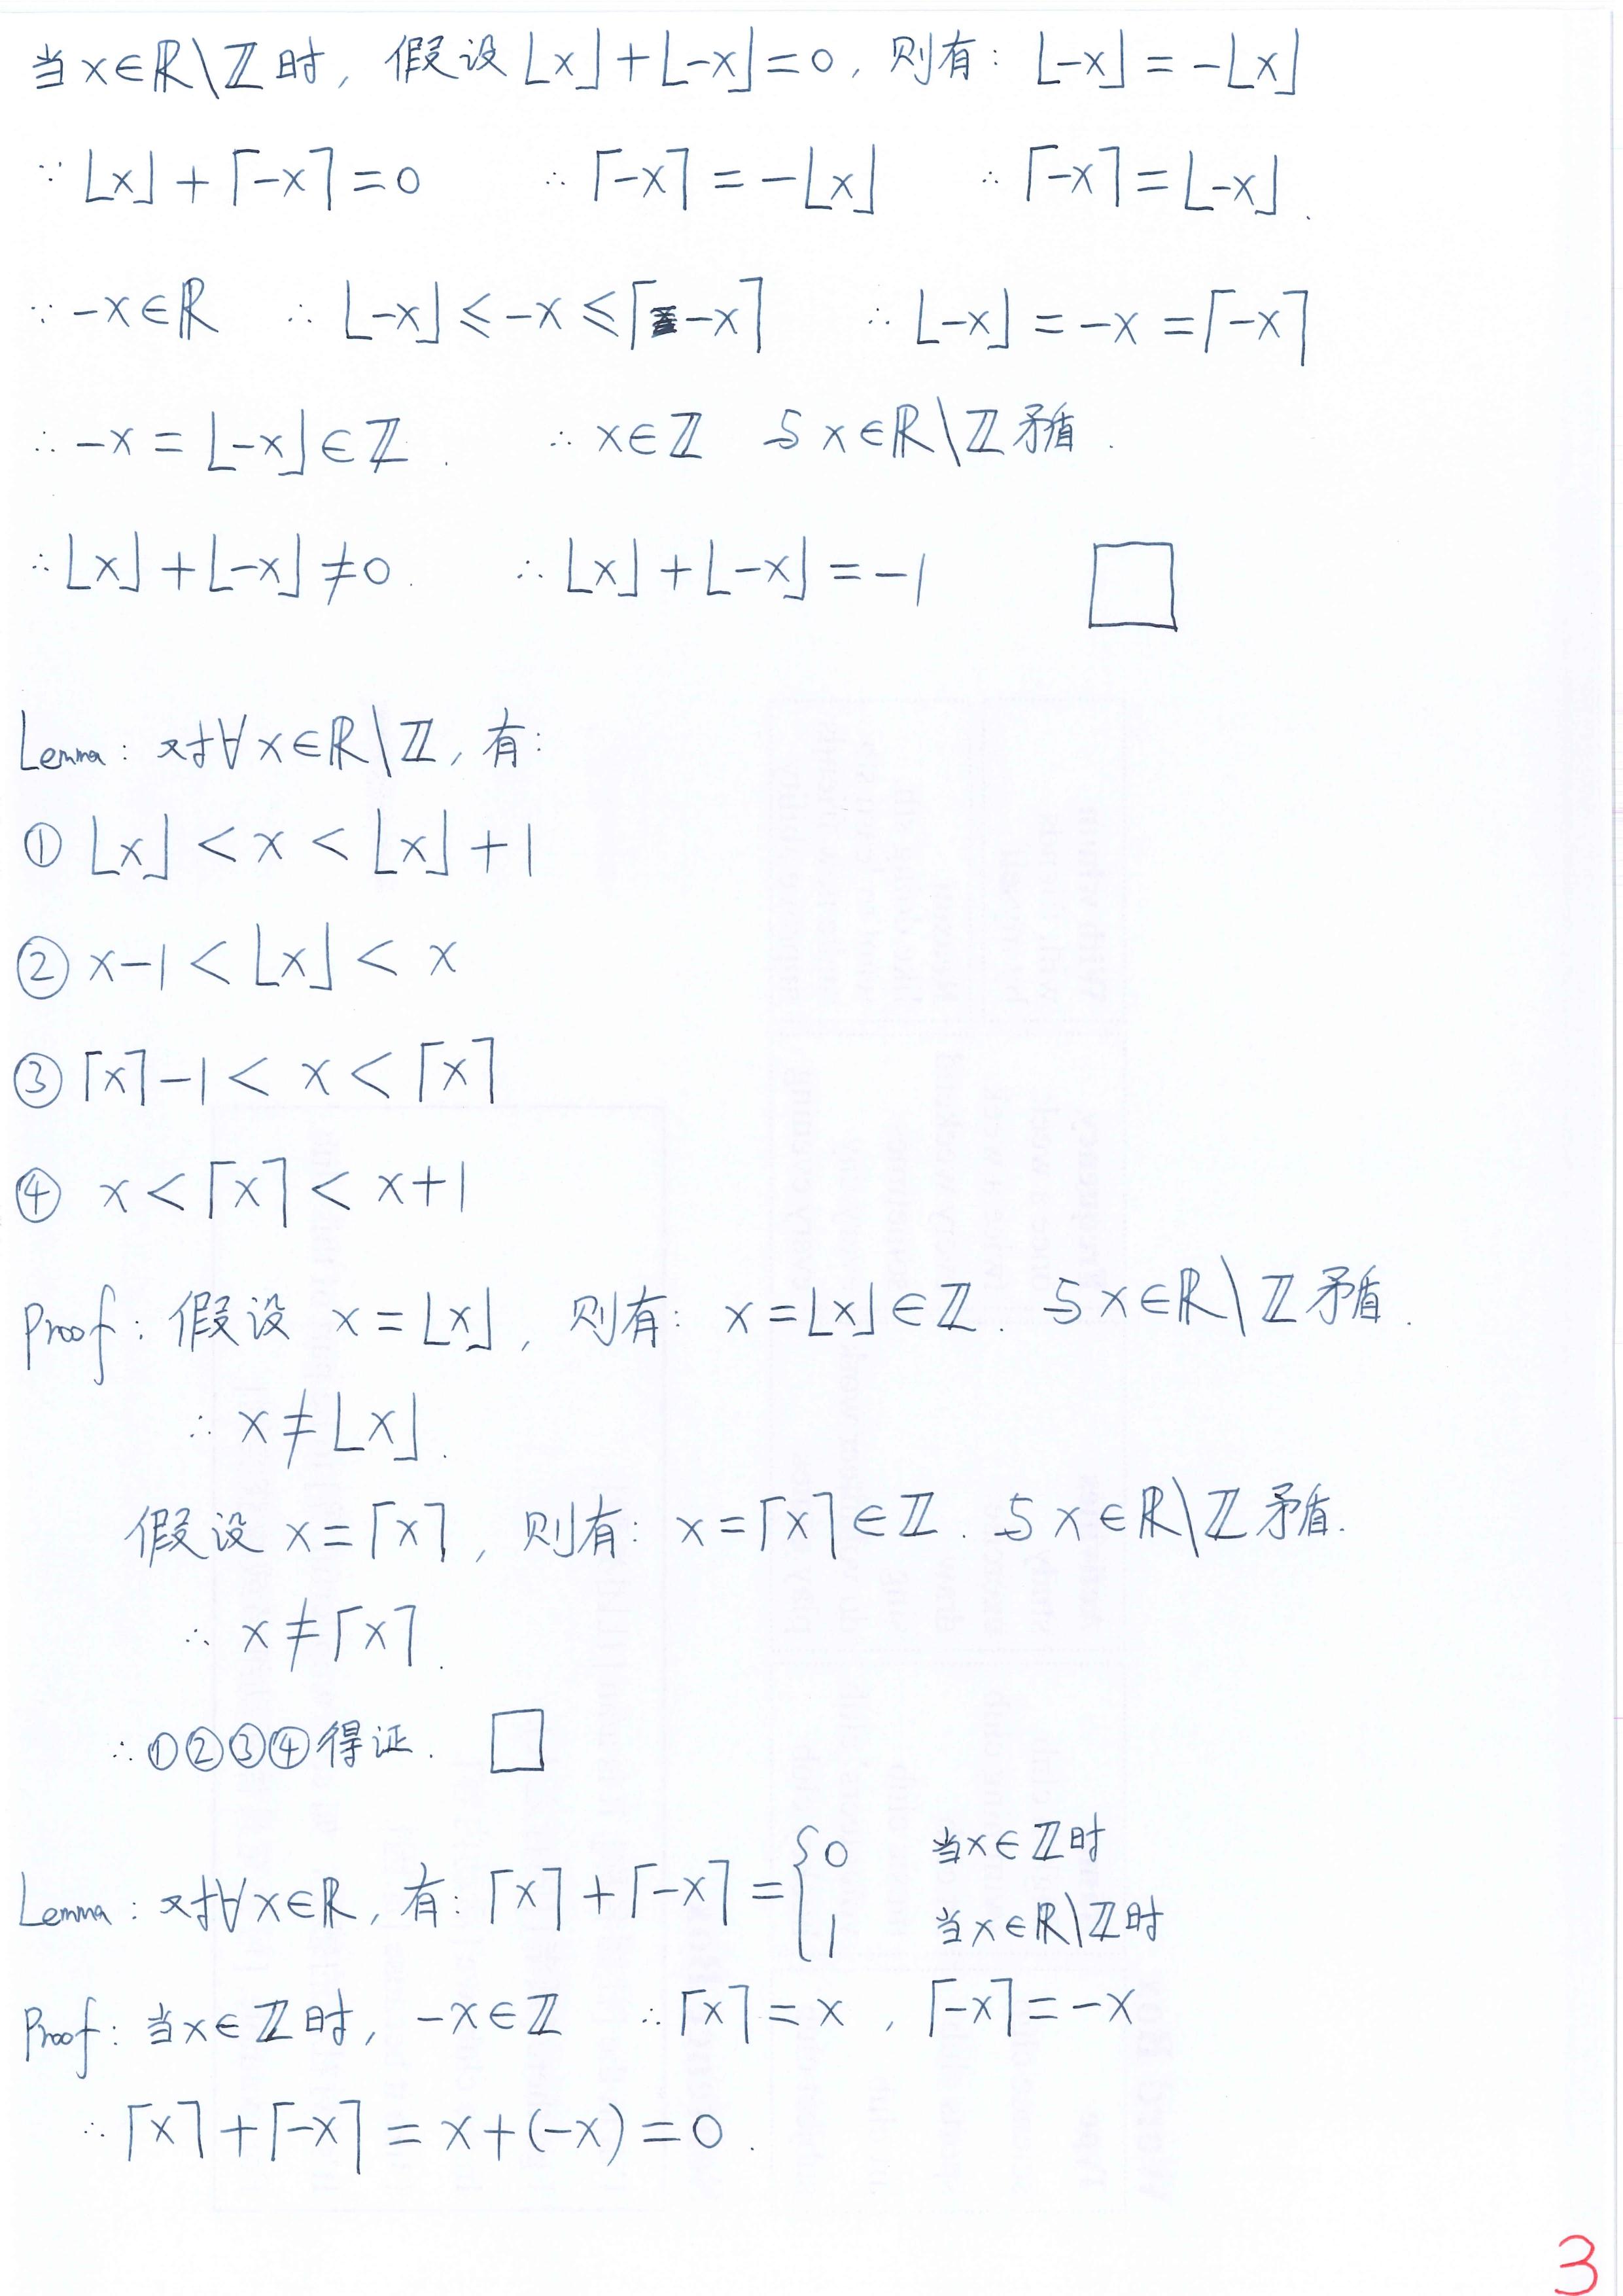 当x∈ℝ\ℤ时, 假设⌊x⌋+⌊-x⌋=0, 则有: ⌊-x⌋=-⌊x⌋
∵ ⌊x⌋+⌈-x⌉=0 ∴ ⌈-x⌉=-⌊x⌋ ∴ ⌈-x⌉=⌊-x⌋.
∵ -x∈ℝ ∴ ⌊-x⌋≤-x≤⌈-x⌉ ∴ ⌊-x⌋=-x=⌈-x⌉
∴ -x=⌊-x⌋∈ℤ. ∴ x∈ℤ 与x∈ℝ\ℤ矛盾.
∴ ⌊x⌋+⌊-x⌋≠0. ∴ ⌊x⌋+⌊-x⌋=-1 □
Lemma: 对∀x∈ℝ\ℤ, 有:
① ⌊x⌋<x<⌊x⌋+1
② x-1<⌊x⌋<x
③ ⌈x⌉-1<x<⌈x⌉
④ x<⌈x⌉<x+1
Proof: 假设 x=⌊x⌋, 则有: x=⌊x⌋∈ℤ. 与x∈ℝ\ℤ矛盾.
∴ x≠⌊x⌋.
假设 x=⌈x⌉, 则有: x=⌈x⌉∈ℤ. 与x∈ℝ\ℤ矛盾.
∴ x≠⌈x⌉.
∴ ①②③④得证. □
Lemma: 对∀x∈ℝ, 有: ⌈x⌉+⌈-x⌉={0 当x∈ℤ时
1 当x∈ℝ\ℤ时
Proof: 当x∈ℤ时, -x∈ℤ ∴ ⌈x⌉=x, ⌈-x⌉=-x
∴ ⌈x⌉+⌈-x⌉=x+(-x)=0.
3